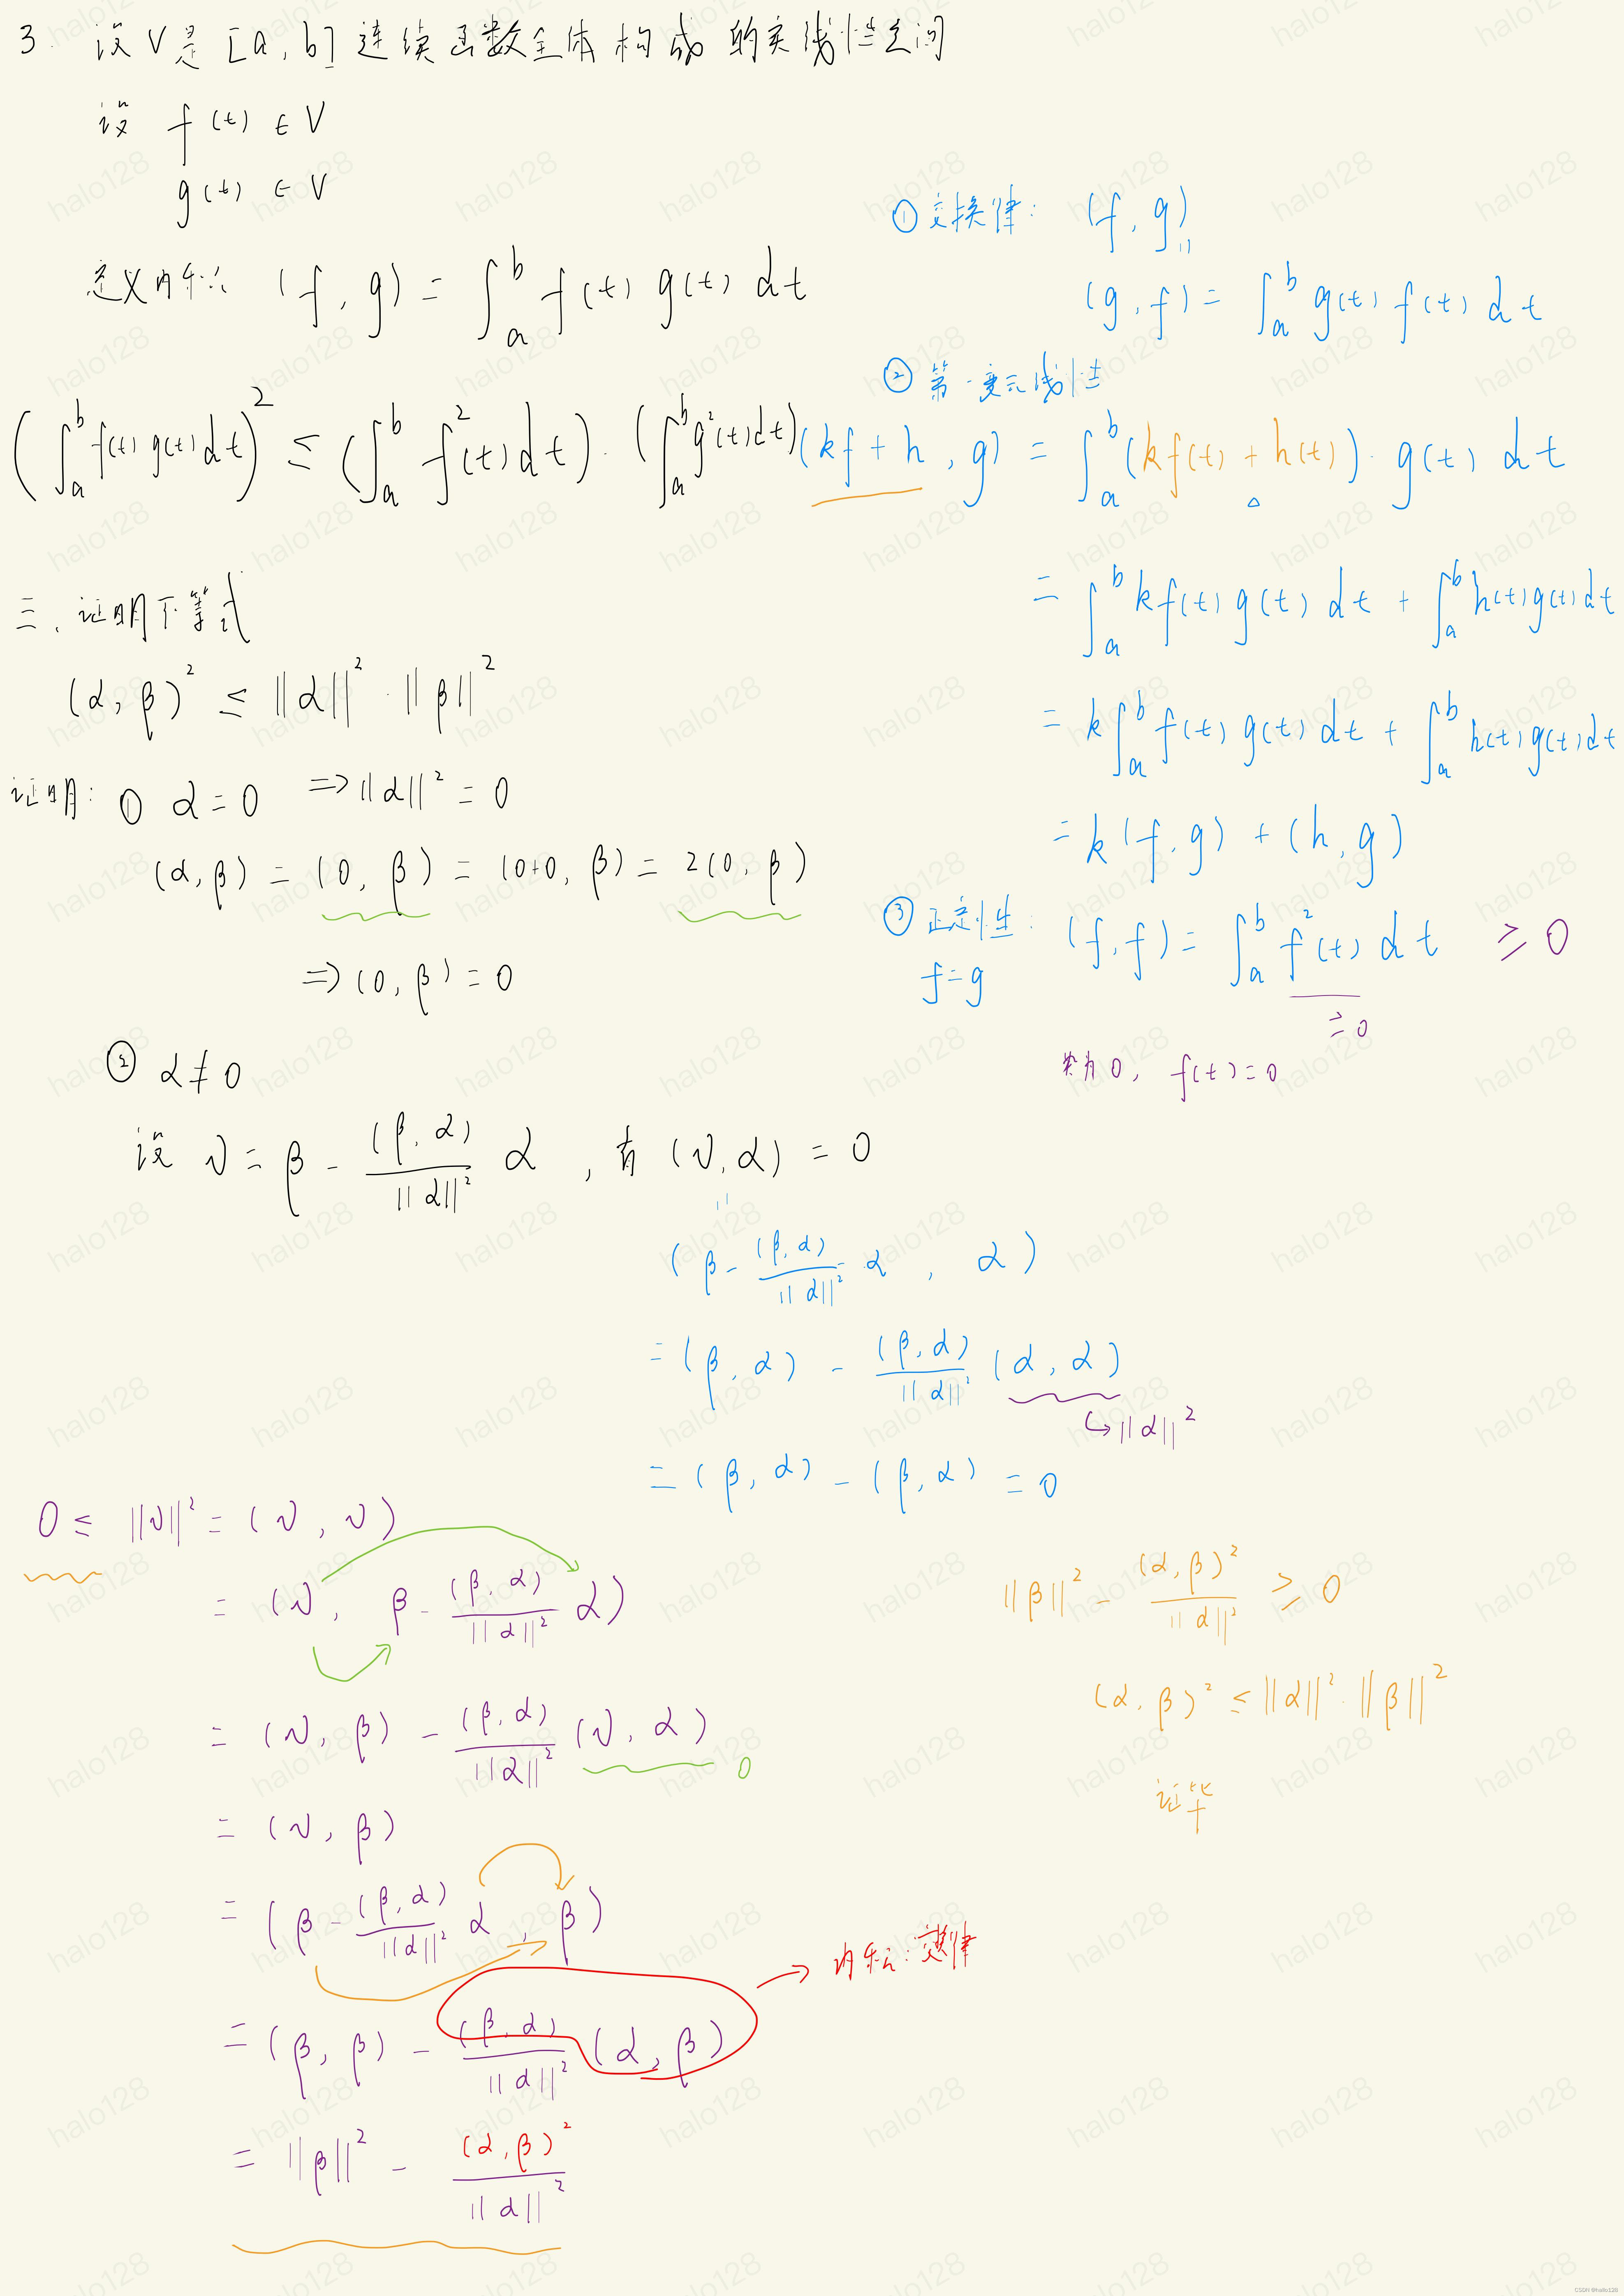 3. 设 V 是 [a, b] 连续函数全体构成的实线性空间
设 f(t) ∈ V
g(t) ∈ V
定义内积: (f, g) = ∫_a^b f(t) g(t) dt
(∫_a^b f(t) g(t) dt)² ≤ (∫_a^b f²(t) dt) · (∫_a^b g²(t) dt)
① 交换律: (f, g)
(g, f) = ∫_a^b g(t) f(t) dt
② 第一变元线性
(kf + h, g) = ∫_a^b (kf(t) + h(t)) · g(t) dt
= ∫_a^b k f(t) g(t) dt + ∫_a^b h(t) g(t) dt
= k ∫_a^b f(t) g(t) dt + ∫_a^b h(t) g(t) dt
= k (f, g) + (h, g)
③ 正定性: (f, f) = ∫_a^b f²(t) dt ≥ 0
f = g
≥ 0
为 0, f(t) = 0
三、证明不等式
(α, β)² ≤ ||α||² · ||β||²
证明: ① α = 0 ⇒ ||α||² = 0
(α, β) = (0, β) = (0+0, β) = 2(0, β)
⇒ (0, β) = 0
② α ≠ 0
设 ν = β - (β, α)/||α||² α , 有 (ν, α) = 0
(β - (β, α)/||α||² α , α)
= (β, α) - (β, α)/||α||² (α, α)
↪ ||α||²
= (β, α) - (β, α) = 0
0 ≤ ||ν||² = (ν, ν)
= (ν, β - (β, α)/||α||² α)
= (ν, β) - (β, α)/||α||² (ν, α) 0
= (ν, β)
= (β - (β, α)/||α||² α , β)
= (β, β) - (β, α)/||α||² (α, β) → 内积: 交换律
= ||β||² - (α, β)²/||α||²
||β||² - (α, β)²/||α||² ≥ 0
(α, β)² ≤ ||α||² · ||β||²
证毕
halo128
CSDN @halo128